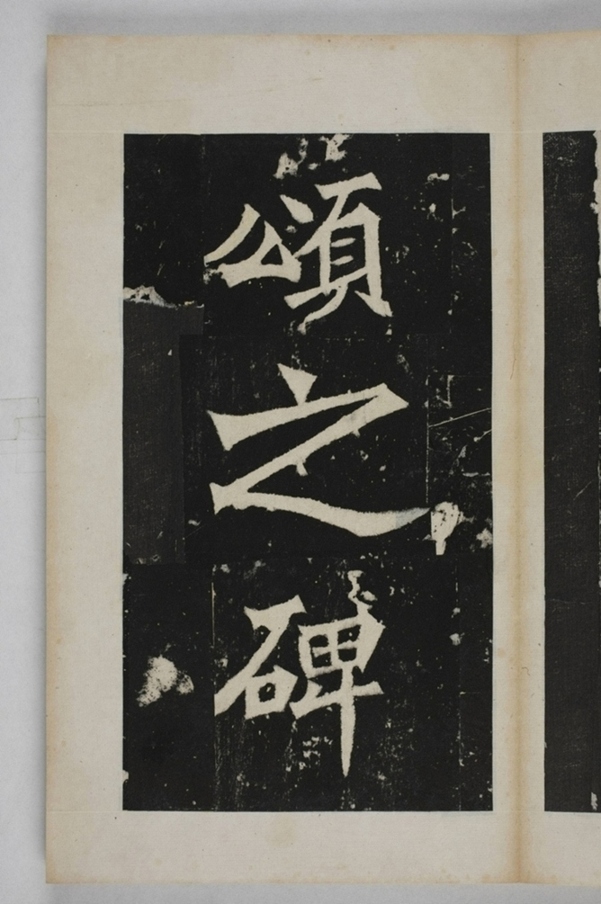 頌之碑